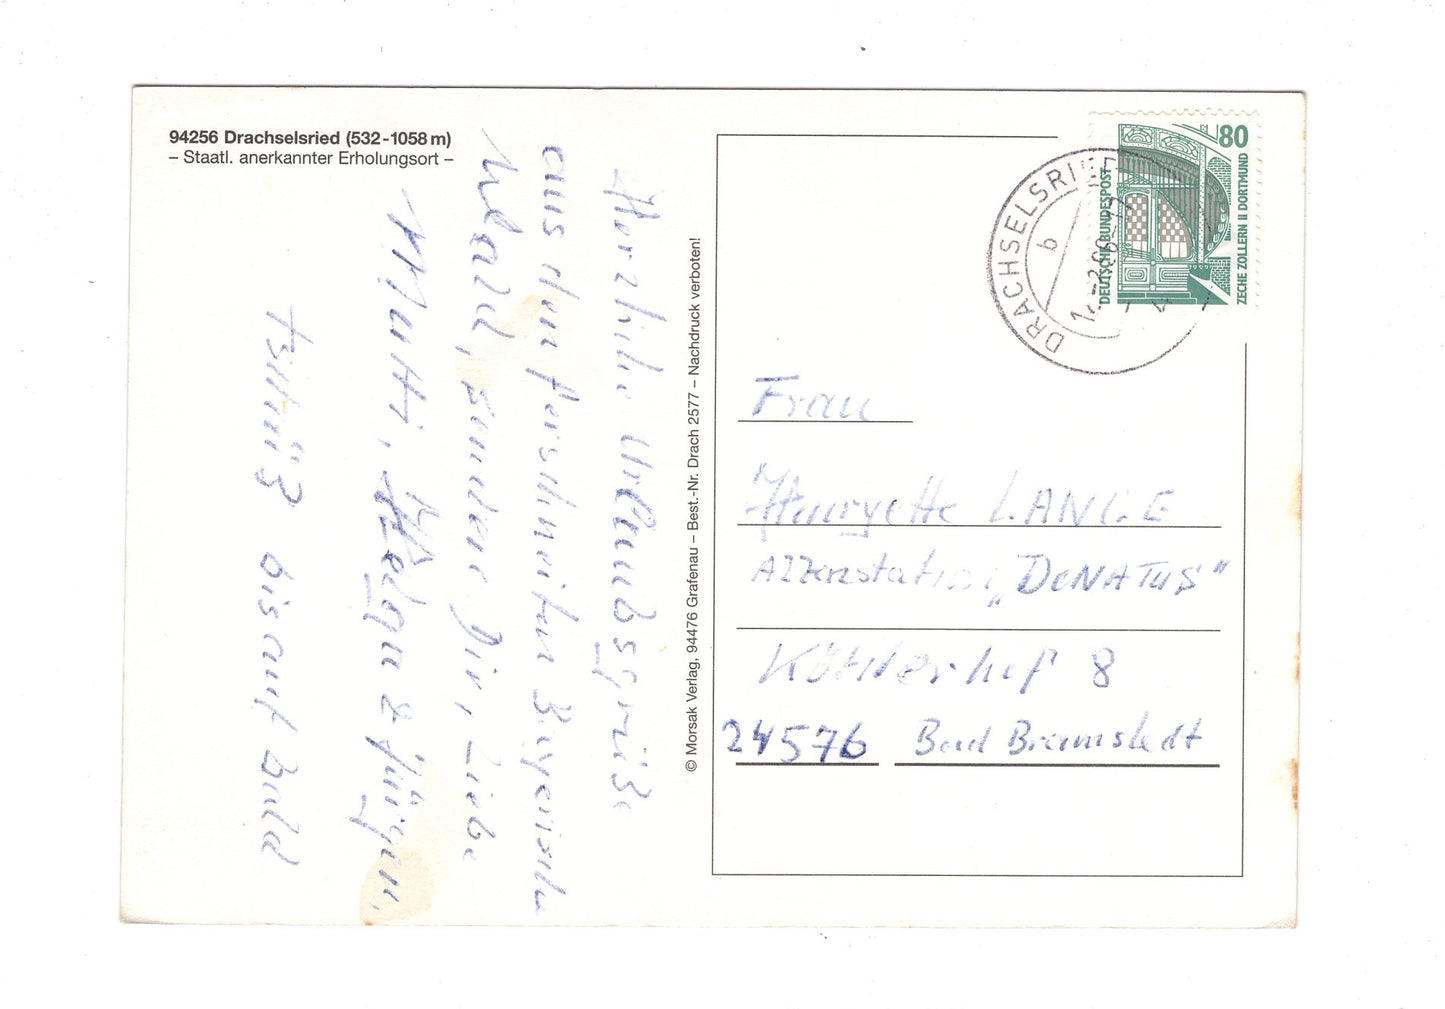 94256 Drachselsried (532-1058 m)
– Staatl. anerkannter Erholungsort –
Herzliche Urlaubsgrüße
aus dem verschneiten Bayerischen
Wald, senden Dir, Liebe
Mutti, Helga & Jürgen,
tschüß bis auf bald
© Morsak Verlag, 94476 Grafenau – Best.-Nr. Drach 2577 – Nachdruck verboten!
80
DEUTSCHE BUNDESPOST
ZECHE ZOLLERN II DORTMUND
DRACHSELSRIED
b
Frau
LANGE
"DONATUS"
8
24576 Bad Bramstedt